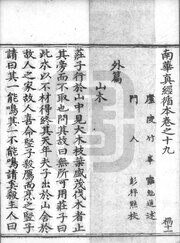 南華真經循本卷之十九
廬陵竹峯羅勉道述
門人彭祥點校
外篇
山木
莊子行於山中見大木枝葉盛茂伐木者止
其旁而不取也問其故曰無所可用莊子曰
此木以不材得終其天年夫子出於山舍於
故人之家故人喜命豎子殺鴈而烹之豎子
請曰其一能鳴其一不能鳴請奚殺主人曰